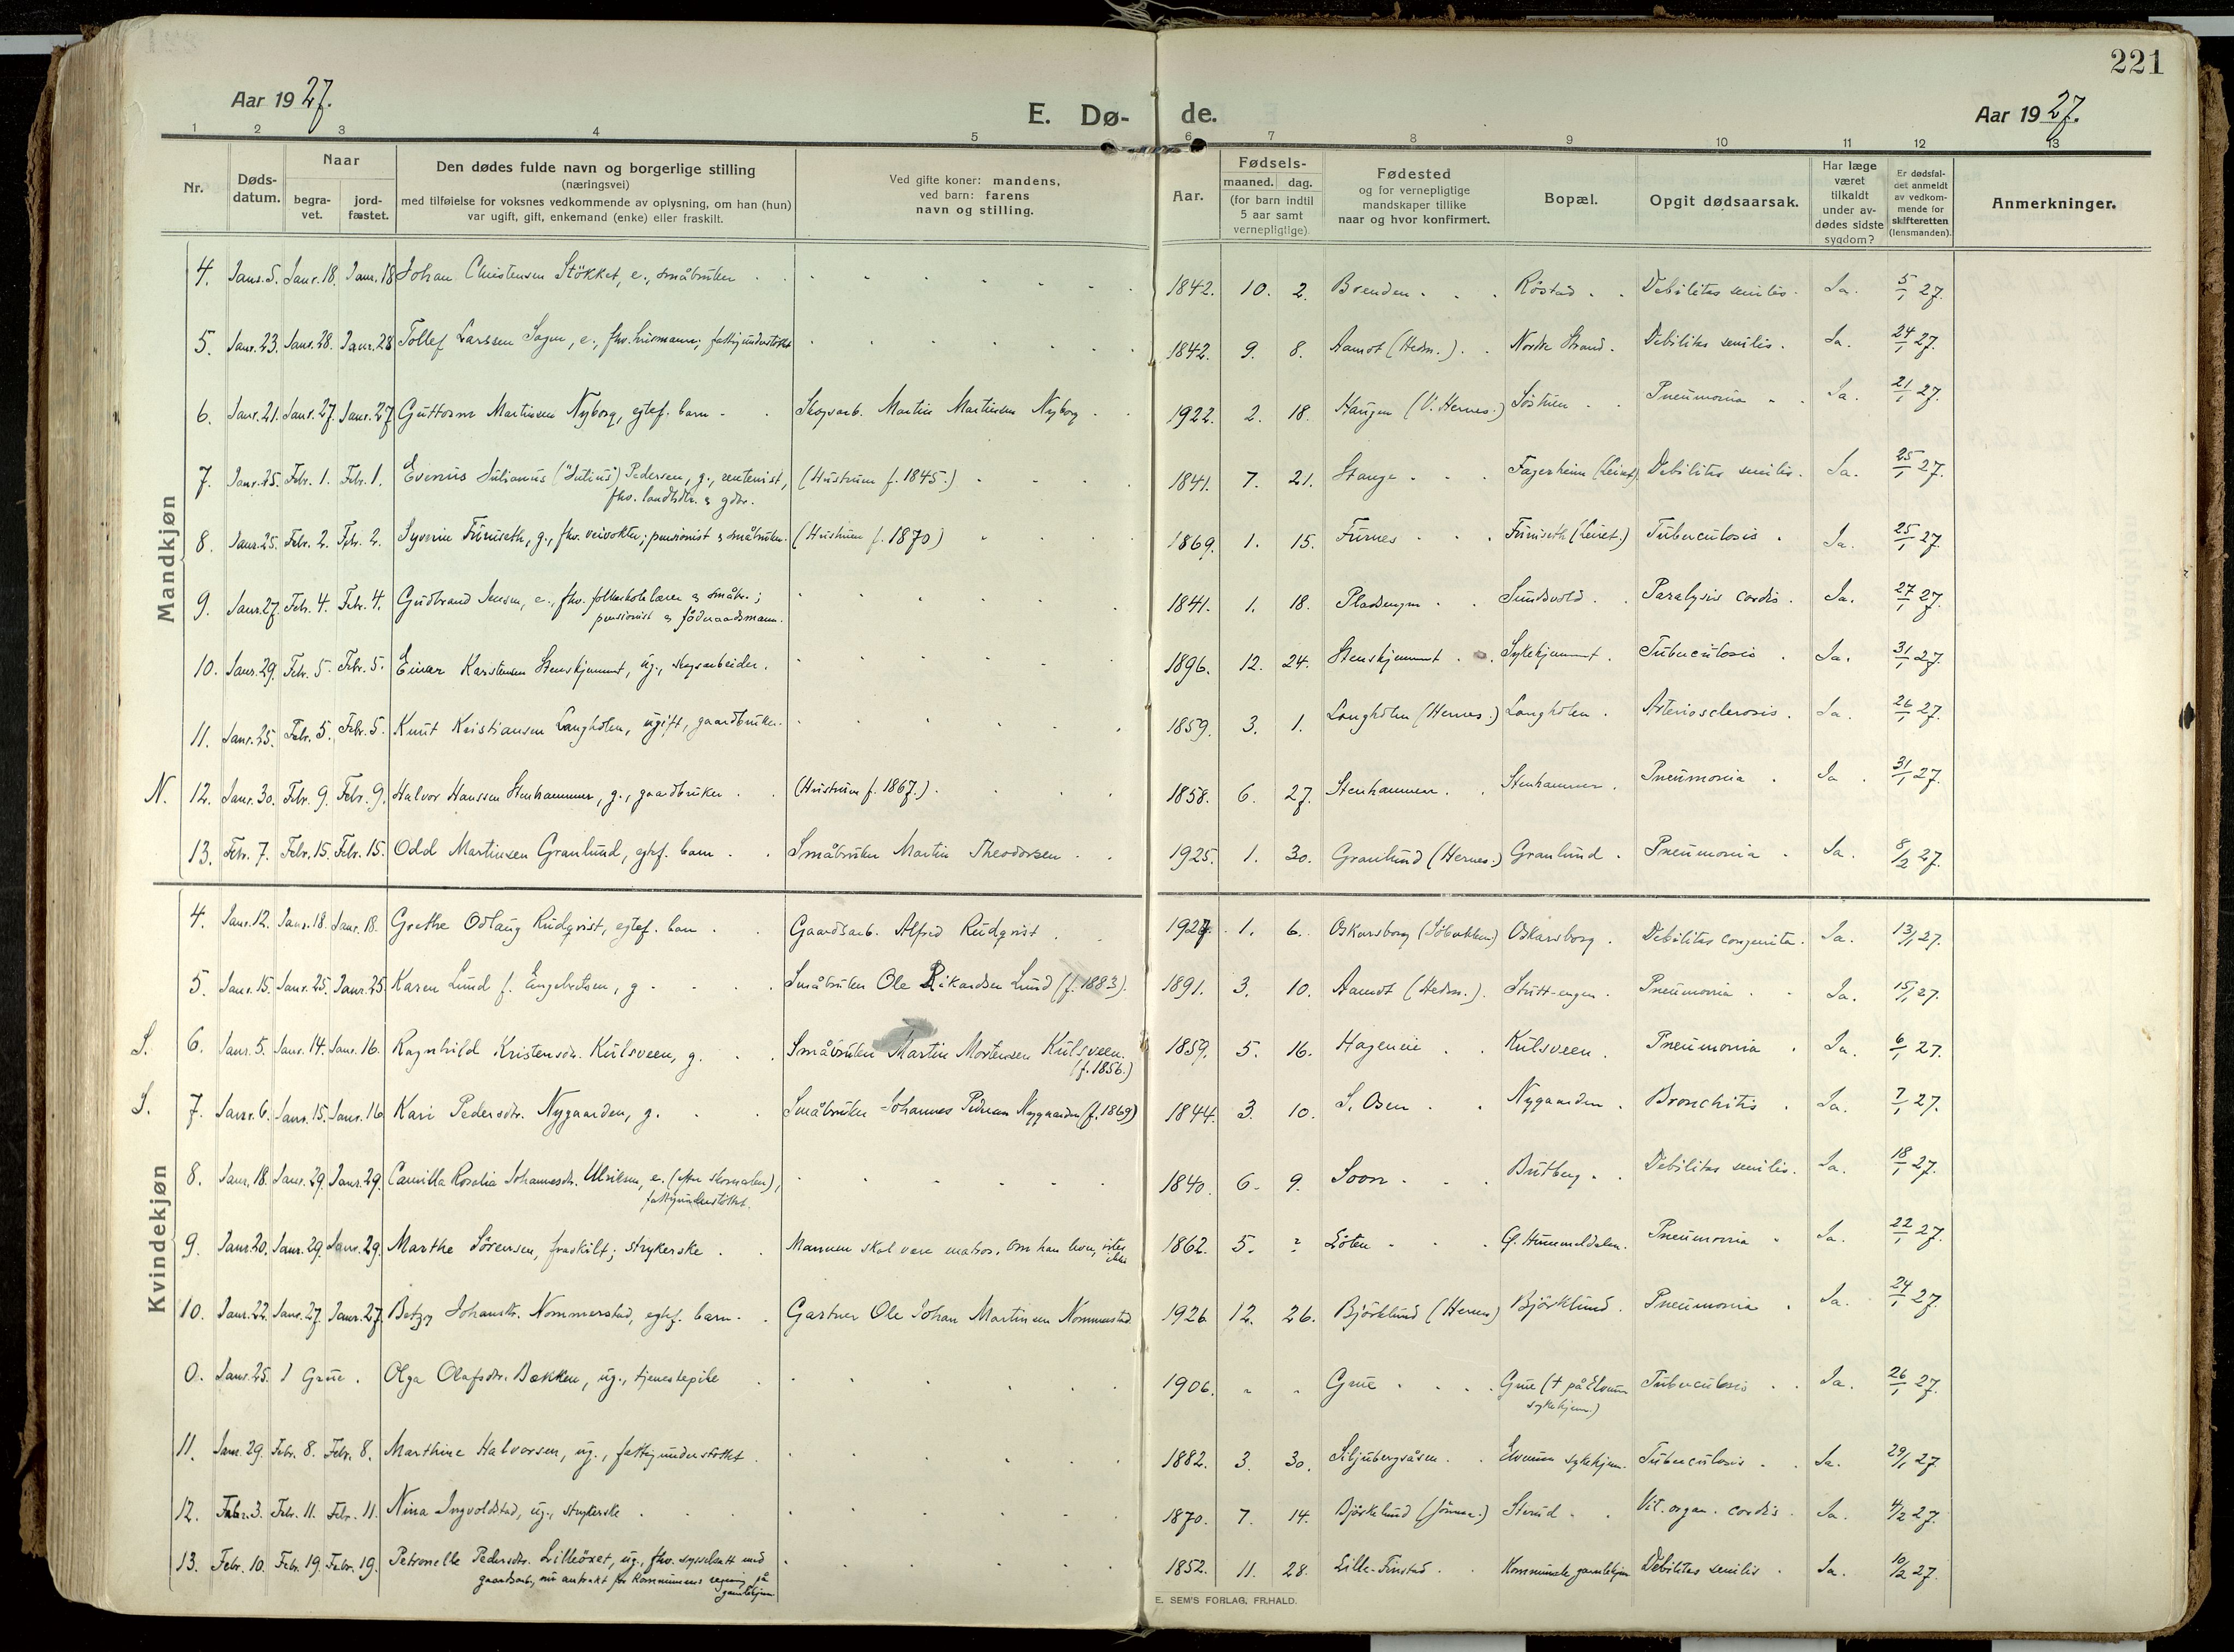 221
Aar 1927.
E. Dø- de.
Aar 1927.
1 2 3 4 5 6 7 8 9 10 11 12 13
Nr.
Døds-
datum.
Naar
begra-
vet.
jord-
fæstet.
Den dødes fulde navn og borgerlige stilling
(næringsvei)
med tilføielse for voksnes vedkommende av oplysning, om han (hun)
var ugift, gift, enkemand (enke) eller fraskilt.
Ved gifte koner: mandens,
ved barn: farens
navn og stilling.
Aar.
Fødsels-
maaned. dag.
(for barn indtil
5 aar samt
vernepligtige)
Fødested
og for vernepligtige
mandskaper tillike
naar og hvor konfirmert.
Bopæl.
Opgit dødsaarsak.
Har læge
været
tilkaldt
under av-
dødes sidste
sygdom?
Er dødsfal-
det anmeldt
av vedkom-
mende for
skifteretten
(lensmanden).
Anmerkninger.
Mandkjøn
4. Janr. 5. Janr. 18. Janr. 18 Johan Christensen Stökket, e., småbruker 1842. 10. 2. Brenden Röstad Debilitas senilis. Ja. 5/1 27.
5. Janr. 23. Janr. 28. Janr. 28 Tollef Larssen Sagen, e., fhv. husmann; fattigunderstöttet 1842. 9. 8. Aamot (Hedm.) Nordre Strand. Debilitas senilis. Ja. 24/1 27.
6. Janr. 21. Janr. 27. Janr. 27 Guttorm Martinsen Nyborg, egtef. barn Skogsarb. Martin Martinsen Nyborg 1922. 2. 18. Haugen (V. Hernes.) Pneumonia Ja. 21/1 27.
7. Janr. 25. Febr. 1. Febr. 1. Evenius Julianus ("Julius") Pedersen, g., rentenist, (Hustruen f. 1845.) 1841. 7. 21. Stange Fagerheim (Leiret) Debilitas senilis. Ja. 25/1 27.
fhv. landhdlr. & gdbr.
8. Janr. 25. Febr. 2. Febr. 2. Syverin Furuseth, g., fhv. veivokter; pensionist & småbruker. (Hustruen f. 1870) 1869. 1. 15. Furnes Furuseth (Leiret.) Tuberculosis Ja. 25/1 27.
9. Janr. 27. Febr. 4. Febr. 4. Gudbrand Jensen, e., fhv. folkeskolelærer & småbr.; 1841. 1. 18. Pladsengen Sundvold Paralysis cordis. Ja. 27/1 27.
pensionist & föderaadsmann.
10. Janr. 29. Febr. 5. Febr. 5. Einar Karstensen Stenskjemmet, ug., skogsarbeider. 1896. 12. 24. Stenskjemmet Sykehjemmet. Tuberculosis Ja. 31/1 27.
11. Janr. 25. Febr. 5. Febr. 5. Knut Kristiansen Langholen, ugift, gaardbruker. 1859. 3. 1. Langholen (Hernes.) Langholen. Arteriosclerosis. Ja. 26/1 27.
N. 12. Janr. 30. Febr. 9. Febr. 9. Halvor Hanssen Stenhammer, g., gaardbruker (Hustruen f. 1867.) 1858. 6. 27. Stenhammer. Stenhammer. Pneumonia Ja. 31/1 27.
13. Febr. 7. Febr. 15. Febr. 15. Odd Martinsen Granlund, egtef. barn Småbruker Martin Theodorsen 1925. 1. 30. Granlund (Hernes.) Granlund. Pneumonia Ja. 8/2 27.
Kvindekjøn
4. Janr. 12. Janr. 18. Janr. 18. Grethe Odlaug Rudqvist, egtef. barn Gaardsarb. Alfred Rudqvist 1927. 1. 6. Oskarsborg Oskarsborg. Debilitas congenita. Ja. 13/1 27.
5. Janr. 15. Janr. 25. Janr. 25 Karen Lund f. Engebretsen, g Småbruker Ole Rikardsen Lund (f. 1883). 1891. 3. 10. Aamot (Hedm.). Stutt-engen. Pneumonia Ja. 15/1 27.
S. 6. Janr. 5. Janr. 14. Janr. 16. Ragnhild Kristensdr. Kulsveen, g. Småbruker Martin Mortensen Kulsveen. 1859. 5. 16. Hageneie Kulsveen. Pneumonia Ja. 6/1 27.
(f. 1856.)
S. 7. Janr. 6. Janr. 15. Janr. 16 Kari Pedersdtr. Nygaarden, g. Småbruker Johannes Pedersen Nygaarden (f. 1869) 1844. 3. 10. S. Osen Nygaarden. Bronchitis Ja. 7/1 27.
8. Janr. 18. Janr. 29. Janr. 29. Camilla Rosalia Johannesdr. Ulriksen, e. (efter skomaker), 1840. 6. 9. Soon Butberg Debilitas senilis. Ja. 18/1 27.
fattigunderstöttet.
9. Janr. 20. Janr. 29. Janr. 29. Marthe Sörensen, fraskilt; strykerske Mannen skal være matros. Om han lever, vites 1862. 5. ? Löten G. Hummeldalen. Pneumonia Ja. 22/1 27.
ikke
10. Janr. 22. Janr. 27. Janr. 27. Betzy Johansdr. Nommerstad, egtef. barn Gartner Ole Johan Martinsen Nommerstad. 1926 12. 26. Björklund (Hernes) Björklund. Pneumonia Ja. 24/1 27.
0. Janr. 25. I Grue. Olga Olafsdtr. Bækken, ug., tjenestepike 1906. Grue Grue († på Elverum Tuberculosis Ja. 26/1 27.
sykehjem.)
11. Janr. 29. Febr. 8. Febr. 8. Marthine Halvorsen, ug., fattigunderstöttet 1882. 3. 30. Siljubergsåsen Elverum sykehjem. Tuberculosis Ja. 29/1 27.
12. Febr. 3. Febr. 11. Febr. 11. Nina Ingvoldstad, ug., strykerske 1870. 7. 14. Björkelund (Jömna.) Sterud Vit. organ. cordis. Ja. 4/2 27.
13. Febr. 10. Febr. 19. Febr. 19. Petronelle Pedersdtr. Lilleöxet, ug., fhv. sysselsatt med 1852. 11. 28. Lille-Finstad Kommunale gamlehjem Debilitas senilis Ja. 10/2 27.
gaardsarb., nu antrakt for kommunens regning på
gamlehjem
E. SEM'S FORLAG, FR.HALD.